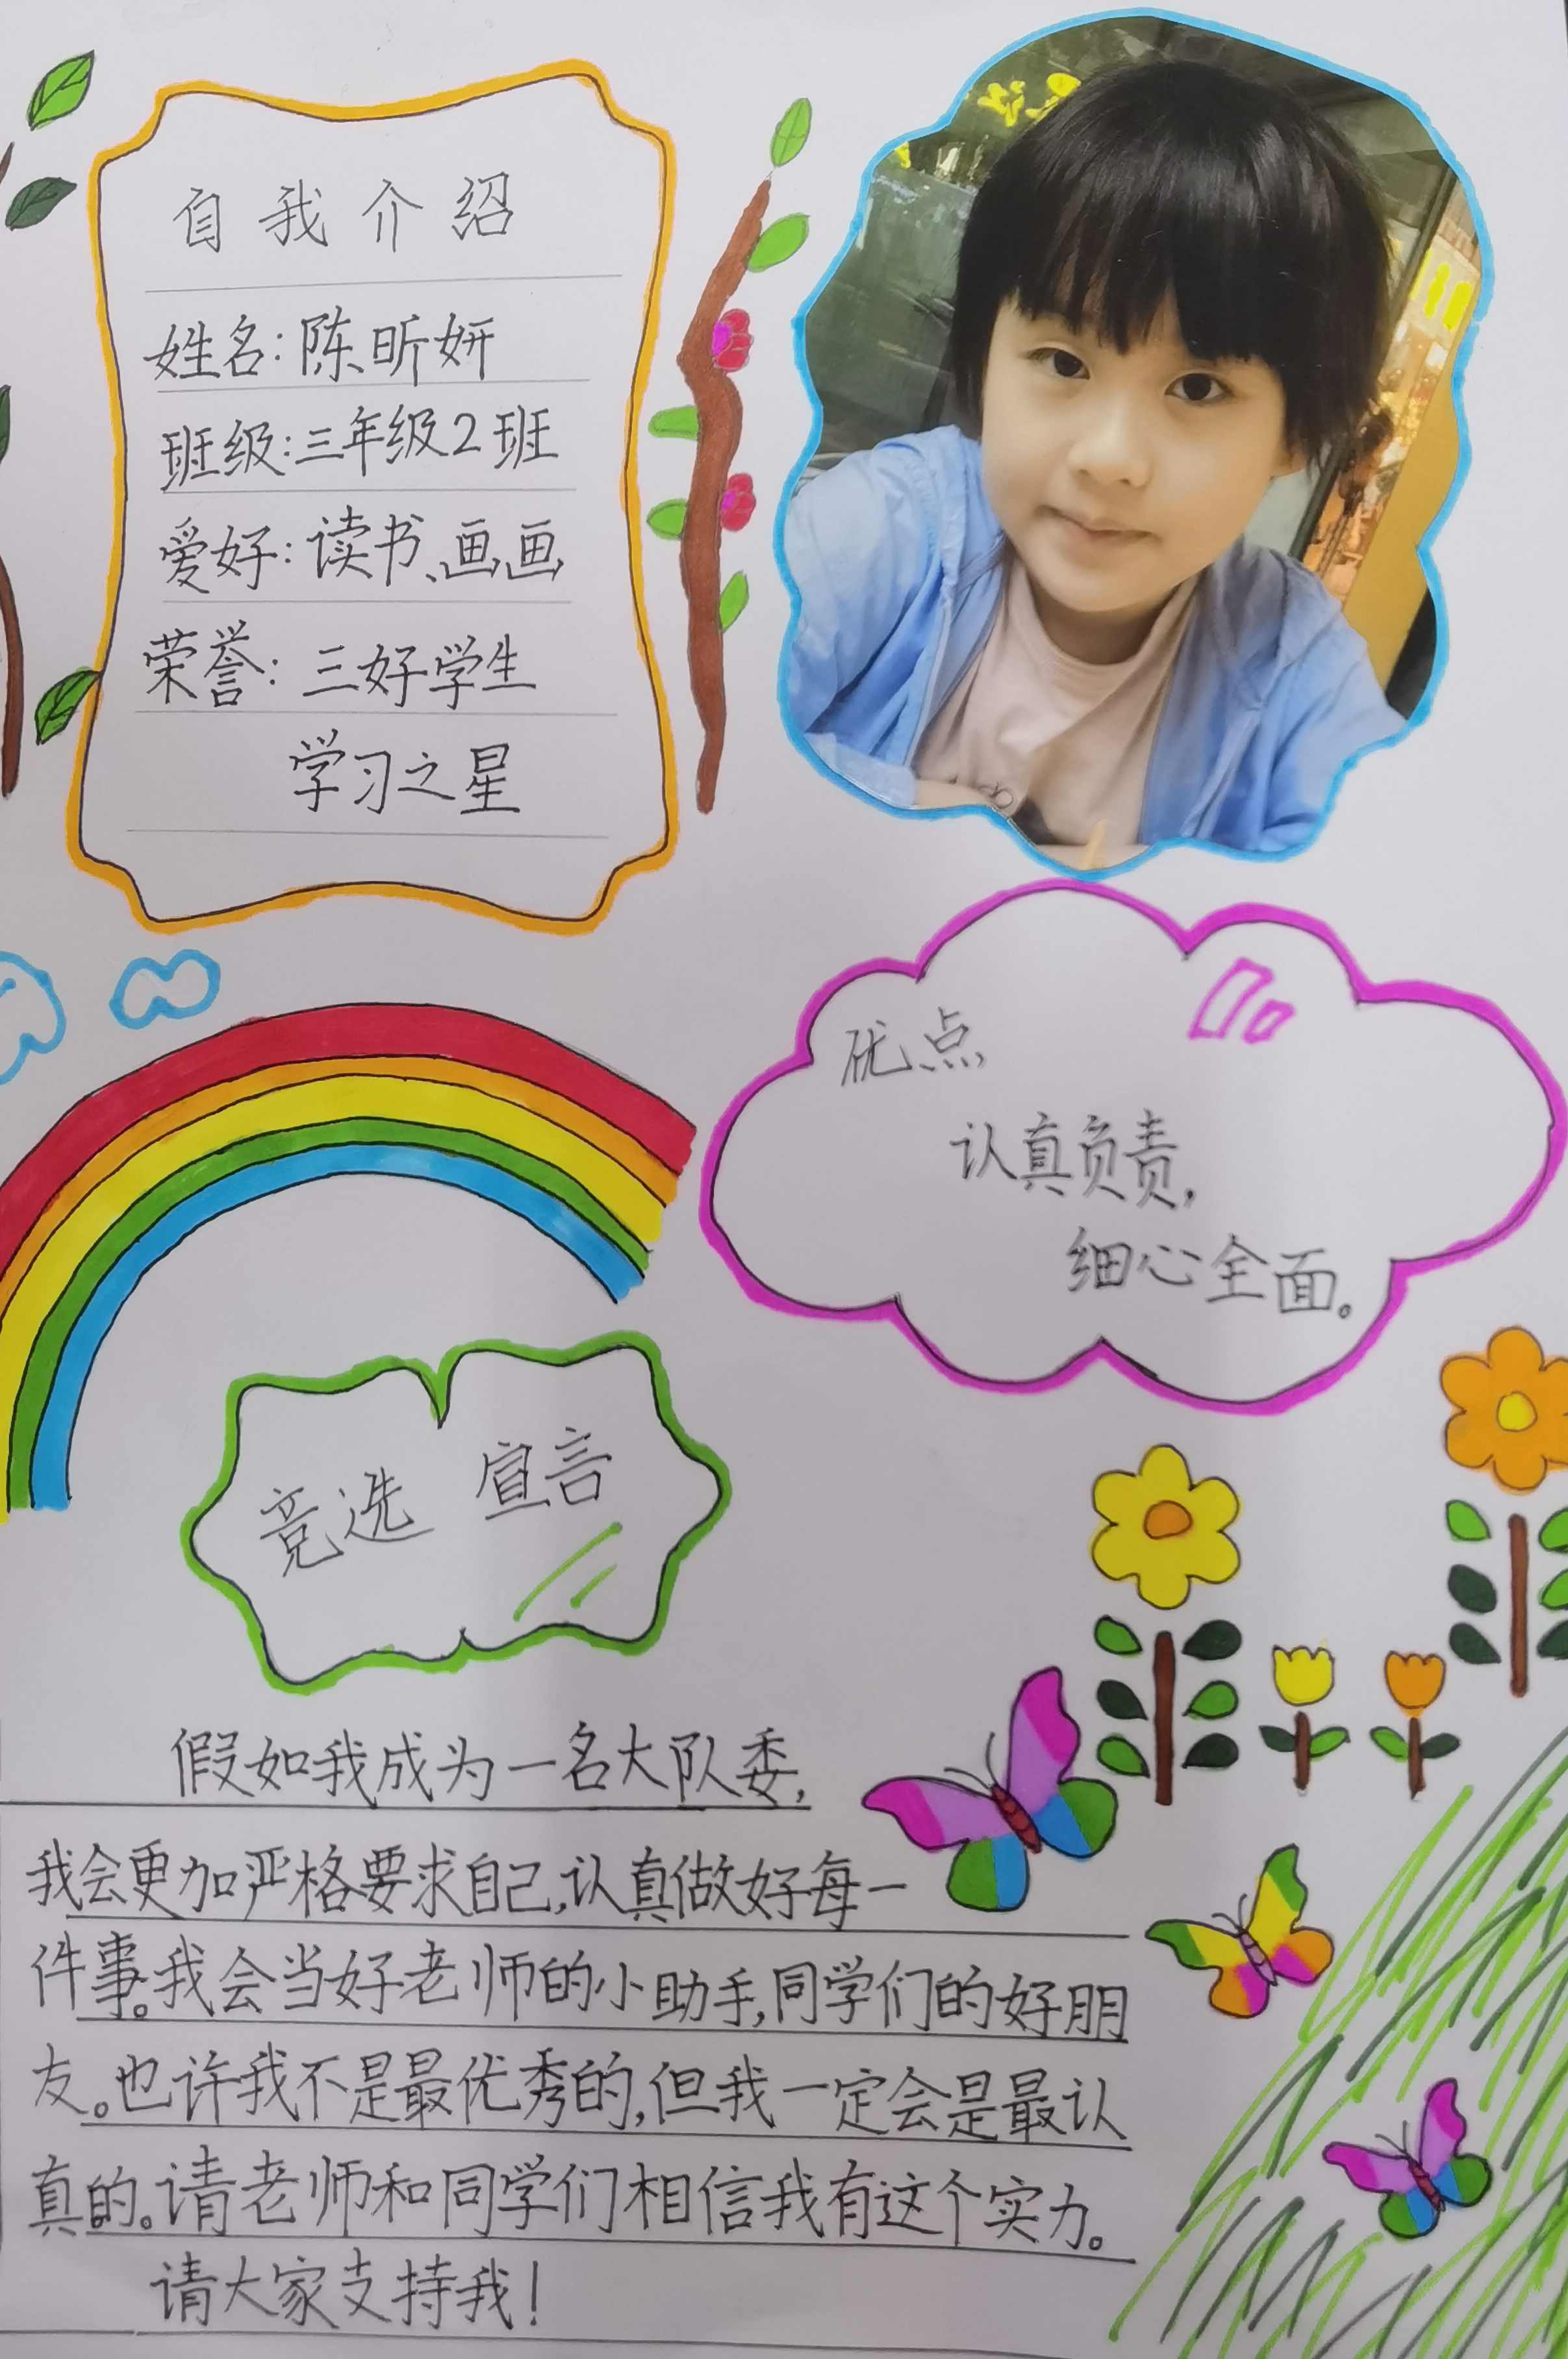 自我介绍
姓名:陈昕妍
班级:三年级2班
爱好:读书、画画
荣誉:三好学生
学习之星
优点
认真负责,
细心全面。
竞选 宣言
假如我成为一名大队委,
我会更加严格要求自己,认真做好每一
件事。我会当好老师的小助手,同学们的好朋
友。也许我不是最优秀的,但我一定会是最认
真的。请老师和同学们相信我有这个实力。
请大家支持我!